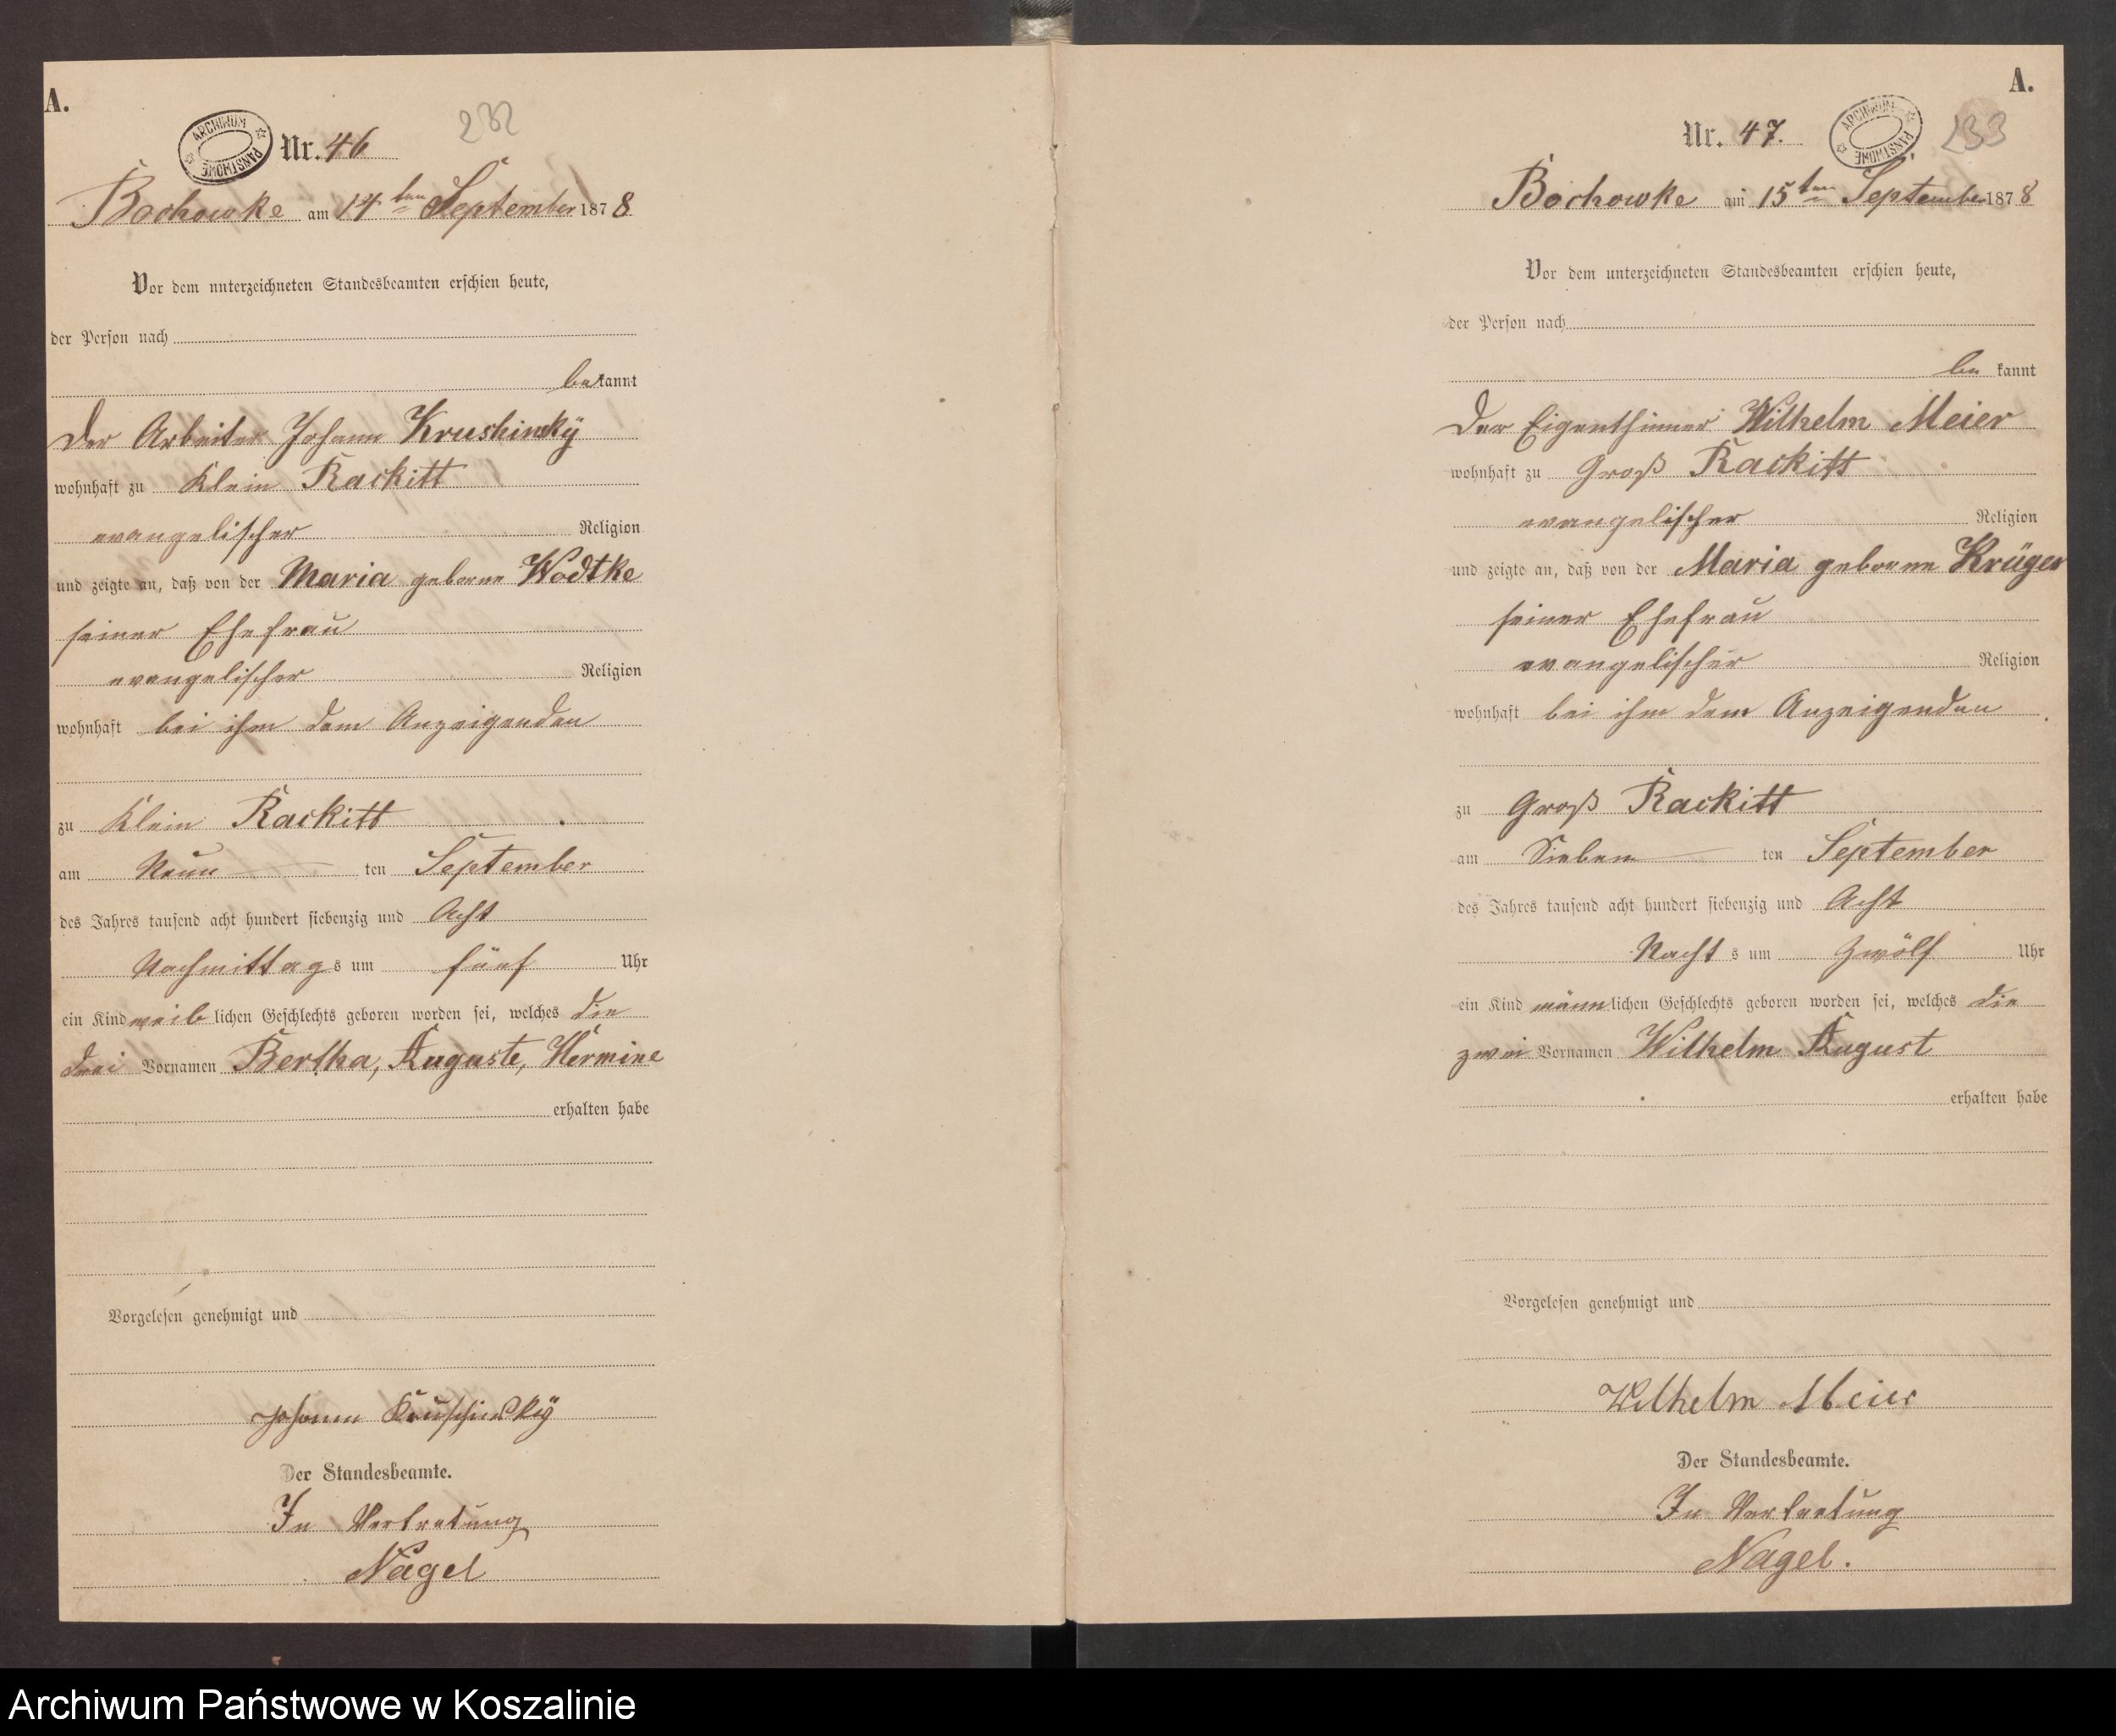 A.
ARCHIWUM PAŃSTWOWE
Nr. 46
232
Bochowke am 14ten September 1878
Vor dem unterzeichneten Standesbeamten erschien heute,
der Person nach
bekannt
Der Arbeiter Johann Krushinsky
wohnhaft zu Klein Rackitt
evangelischer Religion
und zeigte an, daß von der Maria geborne Wodtke
seiner Ehefrau
evangelischer Religion
wohnhaft bei ihm dem Anzeigenden
zu Klein Rackitt
am Neun ten September
des Jahres tausend acht hundert siebenzig und Acht
Nachmittags um fünf Uhr
ein Kind weiblichen Geschlechts geboren worden sei, welches die
drei Vornamen Bertha, Auguste, Hermine
erhalten habe
Vorgelesen genehmigt und
Johann Kruschinsky
Der Standesbeamte.
In Vertretung
Nagel
A.
Nr. 47.
ARCHIWUM PAŃSTWOWE
233
Bochowke am 15ten September 1878
Vor dem unterzeichneten Standesbeamten erschien heute,
der Person nach
be kannt
Der Eigenthümer Wilhelm Meier
wohnhaft zu Groß Rackitt
evangelischer Religion
und zeigte an, daß von der Maria geborne Krüger
seiner Ehefrau
evangelischer Religion
wohnhaft bei ihm dem Anzeigenden
zu Groß Rackitt
am Sieben ten September
des Jahres tausend acht hundert siebenzig und Acht
Nacht s um Zwölf Uhr
ein Kind männlichen Geschlechts geboren worden sei, welches die
zwei Vornamen Wilhelm August
erhalten habe
Vorgelesen genehmigt und
Wilhelm Meier
Der Standesbeamte.
In Vertretung
Nagel.
Archiwum Państwowe w Koszalinie